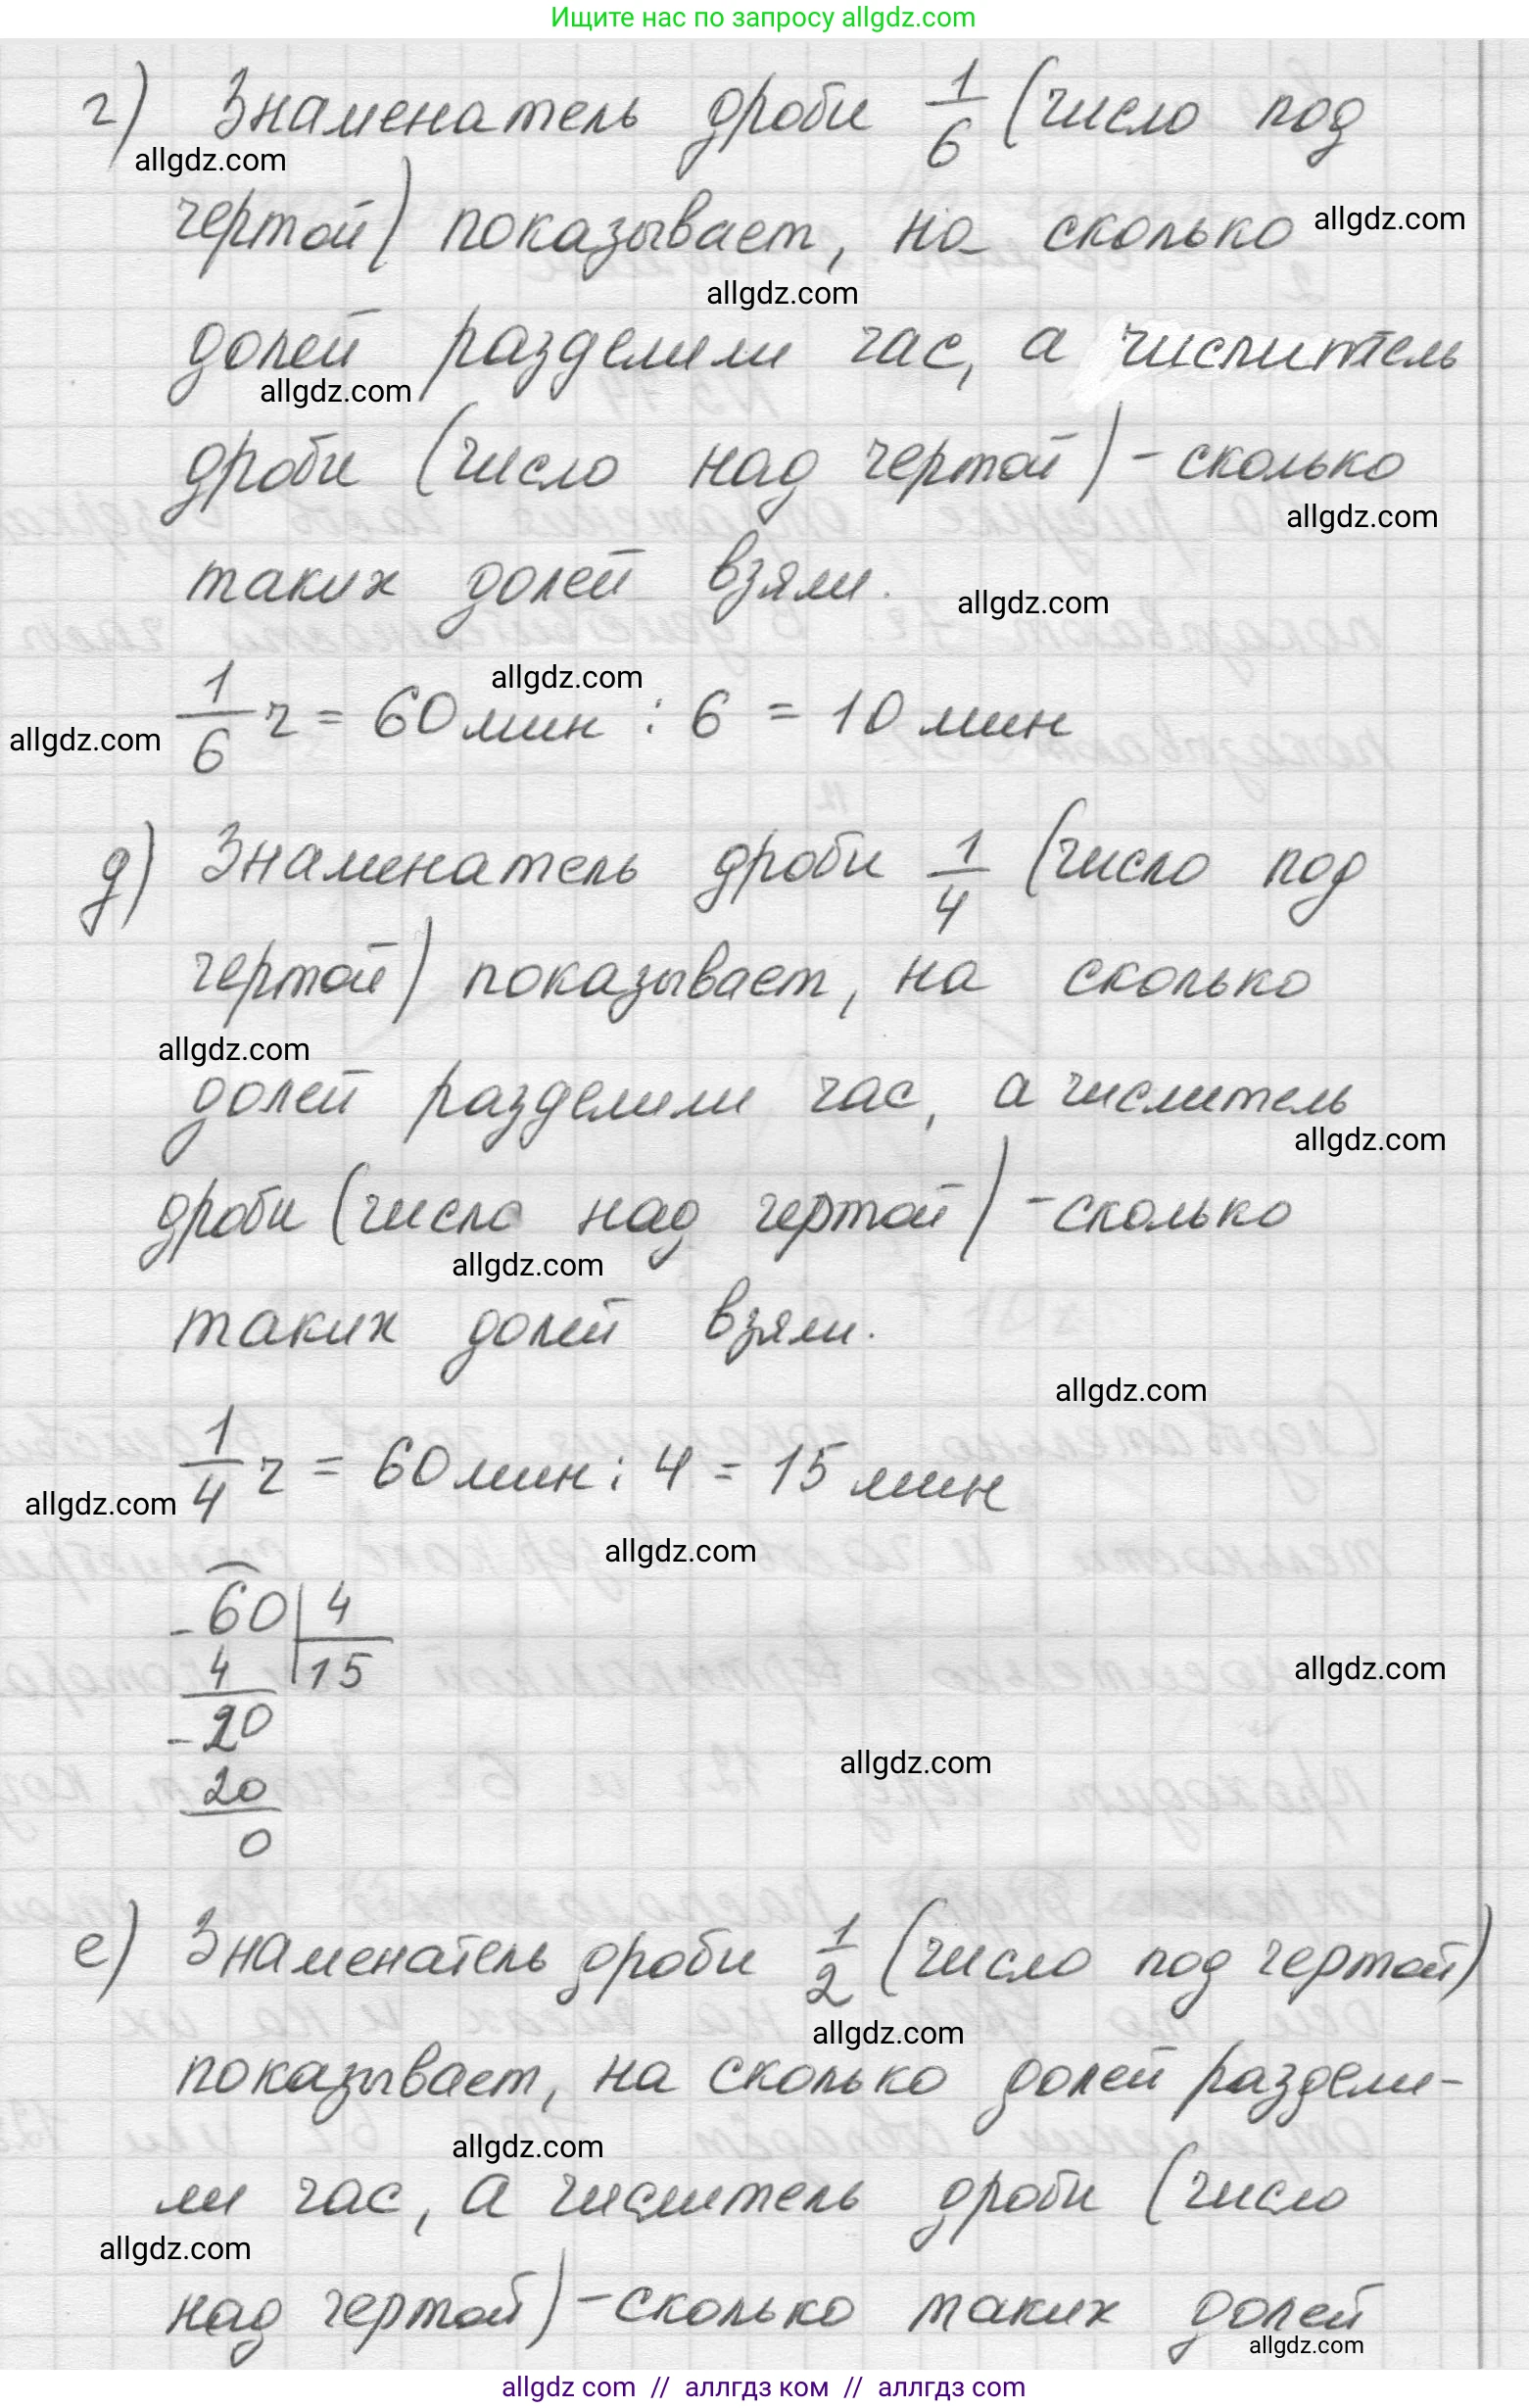 Ищите нас по запросу allgdz.com
г) Знаменатель дроби 1/6 (число под
allgdz.com
чертой) показывает, на сколько allgdz.com
allgdz.com
долей разделили час, а числитель
allgdz.com
дроби (число над чертой) - сколько
allgdz.com
таких долей взяли.
allgdz.com
allgdz.com
1/6 ч = 60 мин : 6 = 10 мин
allgdz.com
д) Знаменатель дроби 1/4 (число под
чертой) показывает, на сколько
allgdz.com
долей разделили час, а числитель
allgdz.com
дроби (число над чертой) - сколько
allgdz.com
таких долей взяли.
allgdz.com
1/4 ч = 60 мин : 4 = 15 мин
allgdz.com
allgdz.com
- 60 | 4
4 | 15
allgdz.com
- 20
allgdz.com
20
0
е) Знаменатель дроби 1/2 (число под чертой)
allgdz.com
показывает, на сколько долей раздели-
allgdz.com
ли час, а числитель дроби (число
allgdz.com
над чертой) - сколько таких долей
allgdz.com
allgdz.com // аллгдз ком // аллгдз.com